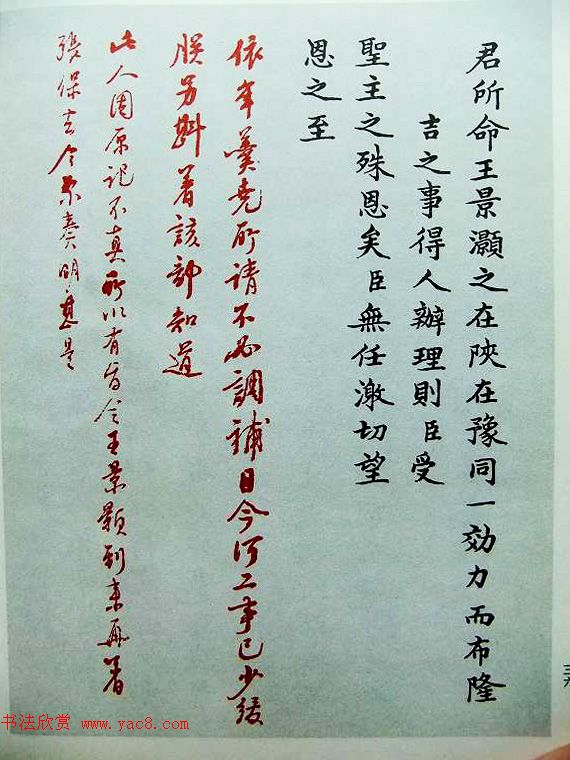 君所命王景灝之在陝在豫同一効力而布隆
吉之事得人辦理則臣受
聖主之殊恩矣臣無任激切望
恩之至
依年羹堯所請不必調補目今河工事已少緩
朕另斟着該部知道
此人因原記不真所以有旨今王景顥到來再着
張保去今系奏明甚是
书法欣赏 www.yac8.com